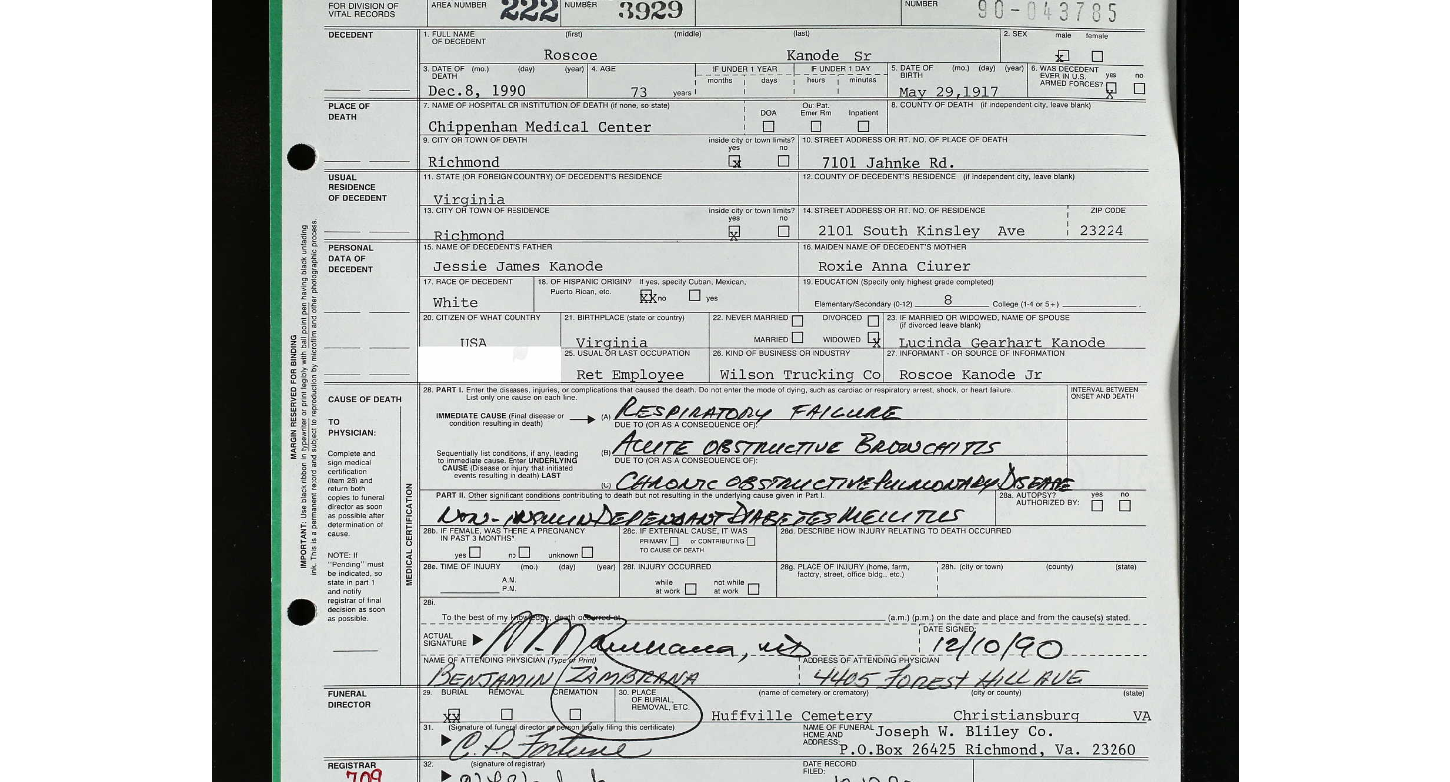 FOR DIVISION OF VITAL RECORDS AREA NUMBER 222 NUMBER 3929 NUMBER 90-043785
DECEDENT 1. FULL NAME OF DECEDENT (first) (middle) (last) 2. SEX male female
Roscoe Kanode Sr x
3. DATE OF DEATH (mo.) (day) (year) 4. AGE IF UNDER 1 YEAR months days IF UNDER 1 DAY hours minutes 5. DATE OF BIRTH (mo.) (day) (year) 6. WAS DECEDENT EVER IN U.S. ARMED FORCES? yes no
Dec.8, 1990 73 years May 29,1917 x
PLACE OF DEATH 7. NAME OF HOSPITAL OR INSTITUTION OF DEATH (if none, so state) DOA Out Pat. Emer Rm Inpatient 8. COUNTY OF DEATH (if independent city, leave blank)
Chippenham Medical Center
9. CITY OR TOWN OF DEATH inside city or town limits? yes no 10. STREET ADDRESS OR RT. NO. OF PLACE OF DEATH
Richmond x 7101 Jahnke Rd.
USUAL RESIDENCE OF DECEDENT 11. STATE (OR FOREIGN COUNTRY) OF DECEDENT'S RESIDENCE 12. COUNTY OF DECEDENT'S RESIDENCE (if independent city, leave blank)
Virginia
13. CITY OR TOWN OF RESIDENCE inside city or town limits? yes no 14. STREET ADDRESS OR RT. NO. OF RESIDENCE ZIP CODE
Richmond x 2101 South Kinsley Ave 23224
PERSONAL DATA OF DECEDENT 15. NAME OF DECEDENT'S FATHER 16. MAIDEN NAME OF DECEDENT'S MOTHER
Jessie James Kanode Roxie Anna Ciurer
17. RACE OF DECEDENT 18. OF HISPANIC ORIGIN? If yes, specify Cuban, Mexican, Puerto Rican, etc. 19. EDUCATION (Specify only highest grade completed)
White xx no yes Elementary/Secondary (0-12) 8 College (1-4 or 5+)
20. CITIZEN OF WHAT COUNTRY 21. BIRTHPLACE (state or country) 22. NEVER MARRIED DIVORCED MARRIED WIDOWED 23. IF MARRIED OR WIDOWED, NAME OF SPOUSE (if divorced leave blank)
USA Virginia x Lucinda Gearhart Kanode
25. USUAL OR LAST OCCUPATION 26. KIND OF BUSINESS OR INDUSTRY 27. INFORMANT - OR SOURCE OF INFORMATION
Ret Employee Wilson Trucking Co Roscoe Kanode Jr
CAUSE OF DEATH 28. PART I. Enter the diseases, injuries, or complications that caused the death. Do not enter the mode of dying, such as cardiac or respiratory arrest, shock, or heart failure. List only one cause on each line. INTERVAL BETWEEN ONSET AND DEATH
IMMEDIATE CAUSE (Final disease or condition resulting in death) (A) RESPIRATORY FAILURE
DUE TO (OR AS A CONSEQUENCE OF):
Sequentially list conditions, if any, leading to immediate cause. Enter UNDERLYING CAUSE (Disease or injury that initiated events resulting in death) LAST
(B) ACUTE OBSTRUCTIVE BRONCHITIS
DUE TO (OR AS A CONSEQUENCE OF):
(C) CHRONIC OBSTRUCTIVE PULMONARY DISEASE
PART II. Other significant conditions contributing to death but not resulting in the underlying cause given in Part I. 28a. AUTOPSY? AUTHORIZED BY: yes no
NON-INSULIN DEPENDANT DIABETES MELLITUS
28b. IF FEMALE, WAS THERE A PREGNANCY IN PAST 3 MONTHS? yes no unknown 28c. IF EXTERNAL CAUSE, IT WAS PRIMARY or CONTRIBUTING TO CAUSE OF DEATH 28d. DESCRIBE HOW INJURY RELATING TO DEATH OCCURRED
28e. TIME OF INJURY (mo.) (day) (year) A.N. P.N. 28f. INJURY OCCURRED while at work not while at work 28g. PLACE OF INJURY (home, farm, factory, street, office bldg., etc.) 28h. (city or town) (county) (state)
28i.
To the best of my knowledge, death occurred at (a.m.) (p.m.) on the date and place and from the cause(s) stated.
ACTUAL SIGNATURE DATE SIGNED 12/10/90
NAME OF ATTENDING PHYSICIAN (Type or Print) ADDRESS OF ATTENDING PHYSICIAN
BENJAMIN ZAMBRANA 4405 FOREST HILL AVE
TO PHYSICIAN:
Complete and sign medical certification (item 28) and return both copies to funeral director as soon as possible after determination of cause.
NOTE: If "Pending" must be indicated, so state in part 1 and notify registrar of final decision as soon as possible.
MEDICAL CERTIFICATION
MARGIN RESERVED FOR BINDING
IMPORTANT: Use black ribbon in typewriter or print legibly with ball point pen having black unfading ink. This is a permanent record and subject to reproduction by microfilm and other photographic process.
FUNERAL DIRECTOR 29. BURIAL REMOVAL CREMATION 30. PLACE OF BURIAL, REMOVAL, ETC. (name of cemetery or crematory) (city or county) (state)
xx Huffville Cemetery Christiansburg VA
31. (Signature of funeral director or person legally filing this certificate) NAME OF FUNERAL HOME AND ADDRESS: Joseph W. Bliley Co.
C.P. Fortune P.O.Box 26425 Richmond, Va. 23260
REGISTRAR 32. (signature of registrar) DATE RECORD FILED:
709